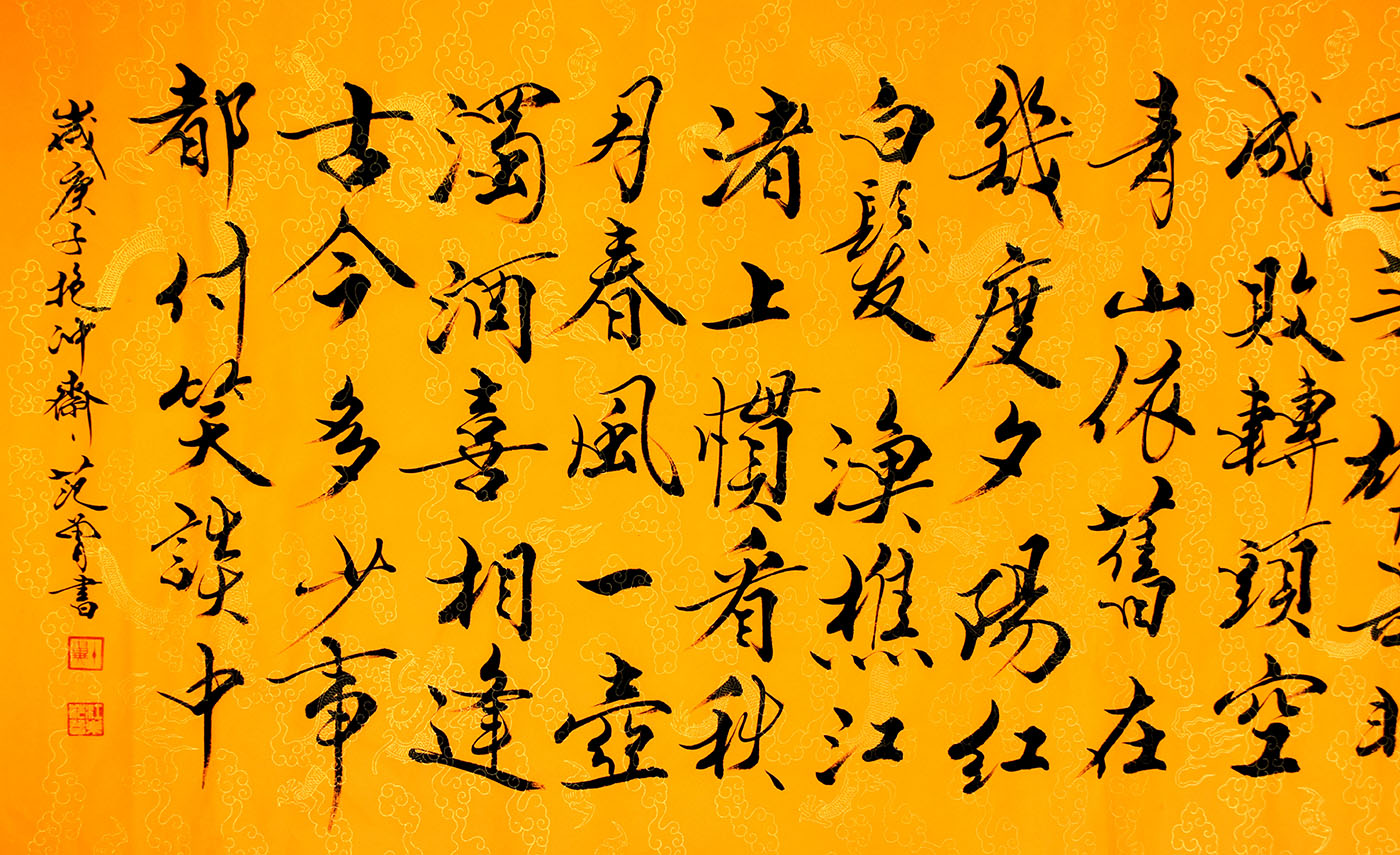 成敗轉頭空
青山依舊在
幾度夕陽紅
白髮漁樵江
渚上慣看秋
月春風一壺
濁酒喜相逢
古今多少事
都付笑談中
歲庚子抱沖齋、范曾書